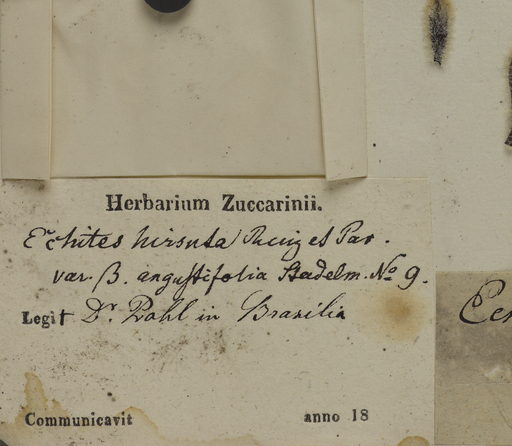 Herbarium Zuccarinii.
Echites hirsuta Ruiz et Pav.
var. β. angustifolia Stadelm. No 9.
Legit Dr. Pohl in Brasilia
Communicavit anno 18